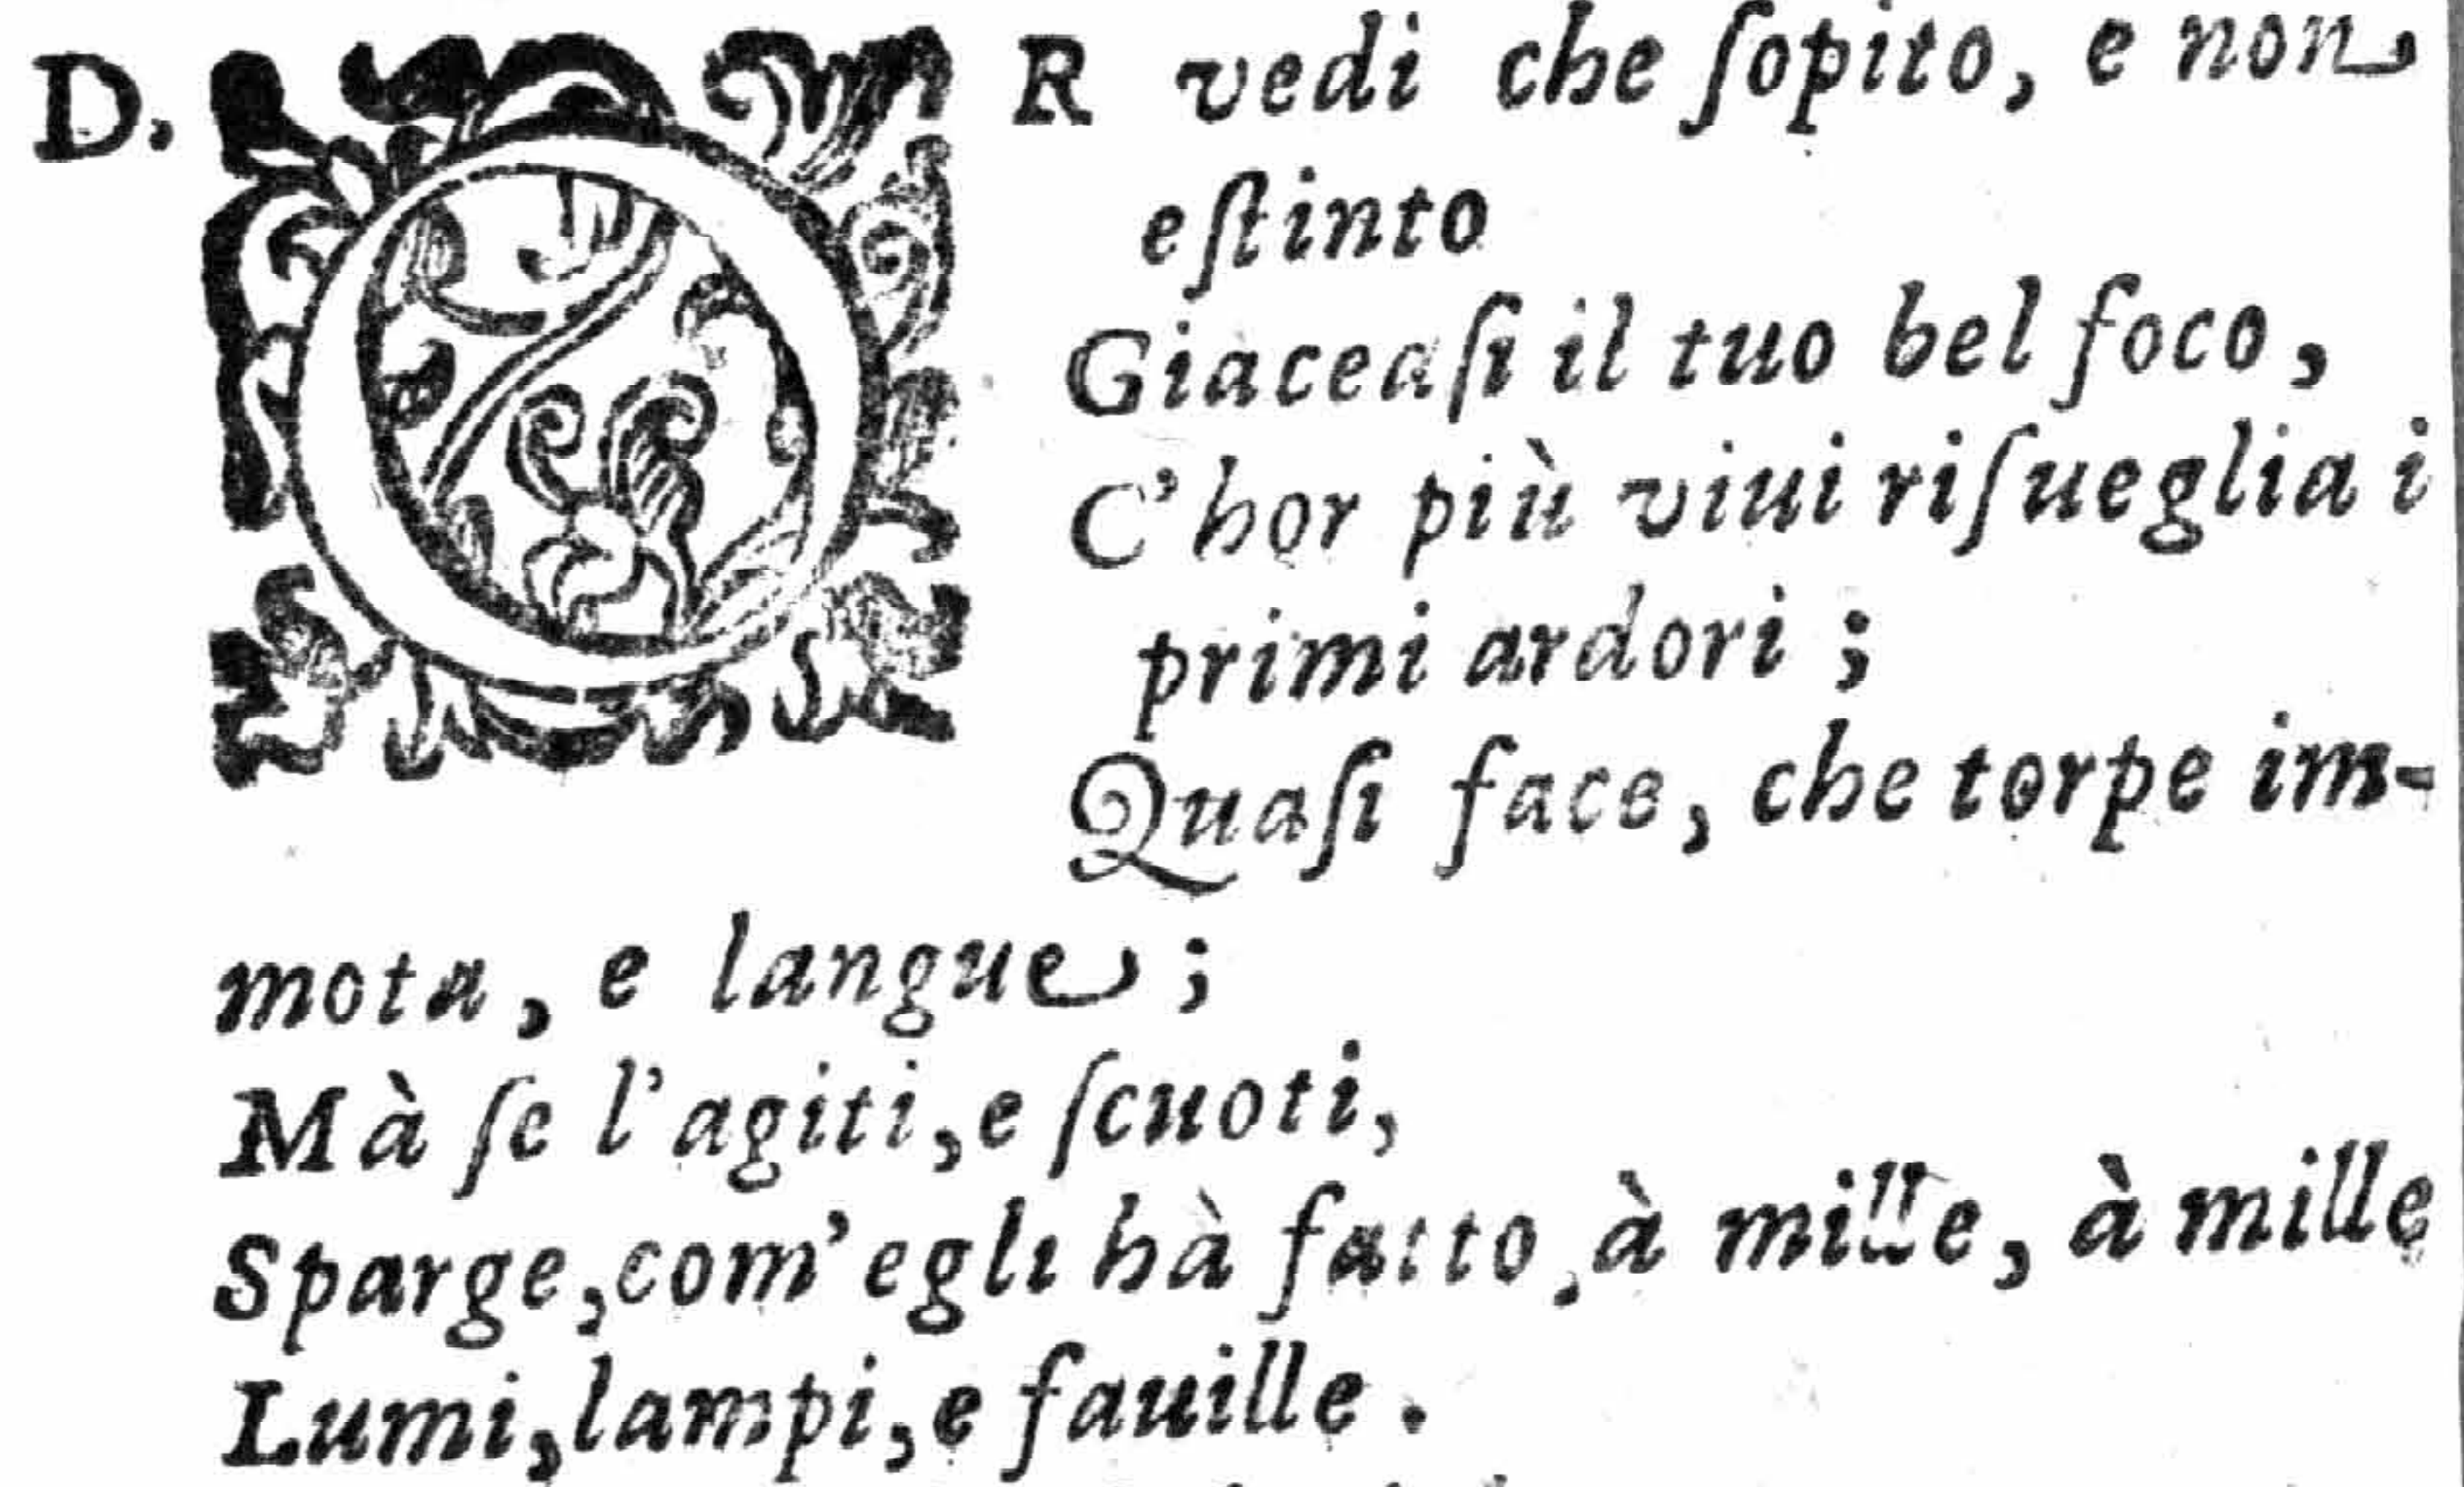 D. OR vedi che ſopito, e non
eſtinto
Giaceaſi il tuo bel foco,
C'hor più viui riſueglia i
primi ardori;
Quaſi face, che torpe im-
mota, e langue;
Mà ſe l'agiti, e ſcuoti,
Sparge, com'egli hà fatto, à mille, à mille
Lumi, lampi, e fauille.